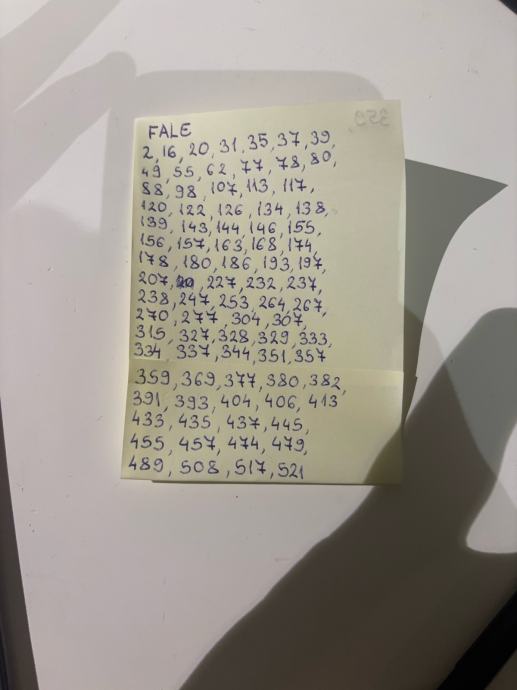 FALE
2, 16, 20, 31, 35, 37, 39,
49, 55, 62, 77, 78, 80,
88, 98, 107, 113, 117,
120, 122, 126, 134, 138,
139, 143, 144, 146, 155,
156, 157, 163, 168, 174,
178, 180, 186, 193, 197,
207, 227, 232, 237,
238, 247, 253, 264, 267,
270, 277, 304, 307,
315, 327, 328, 329, 333,
334, 337, 344, 351, 357
359, 369, 377, 380, 382,
391, 393, 404, 406, 413
433, 435, 437, 445,
455, 457, 474, 479,
489, 508, 517, 521